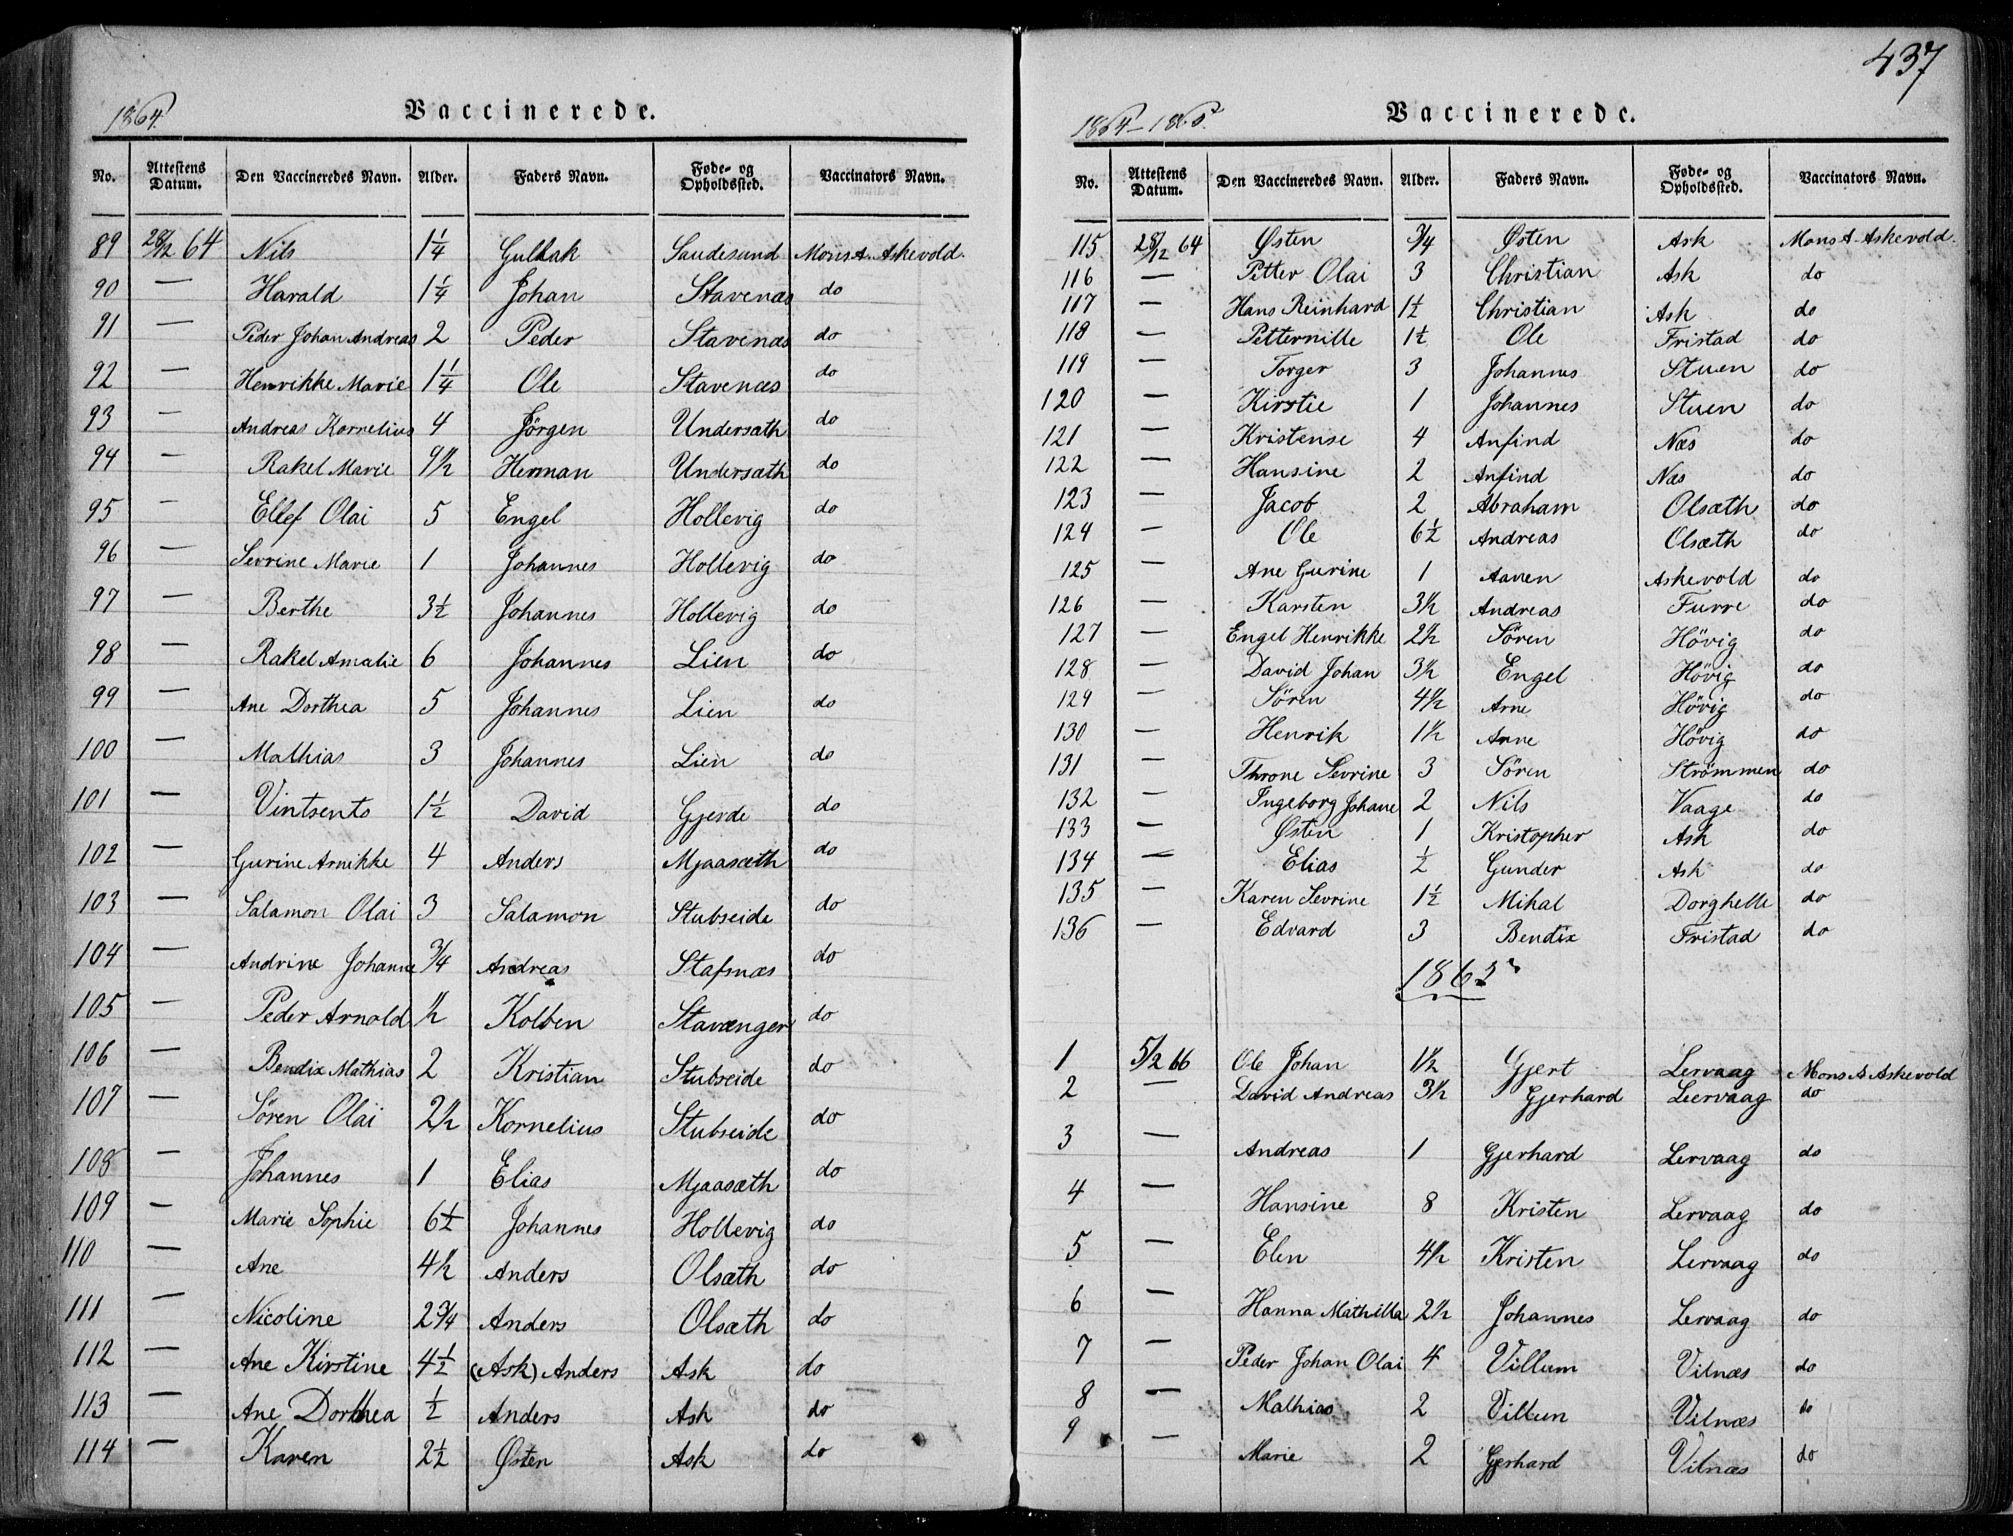 1864.
Vaccinerede.
No. Attestens Datum. Den Vaccineredes Navn. Alder. Faders Navn. Føde- og Opholdssted. Vaccinators Navn.
89 28/12 64 Nils 1 1/4 Gullak Saudesund Mons A. Askevold.
90 — Harald 1 1/4 Johan Stavenæs do
91 — Peder Johan Andreas 2 Peder Stavenæs do
92 — Henrikke Marie 1 1/4 Ole Stavenæs do
93 — Andreas Kornelius 4 Jörgen Undersæth do
94 — Rakel Marie 9 1/2 Herman Undersæth do
95 — Ellef Olai 5 Engel Hollevig do
96 — Sevrine Marie 1 Johannes Hollevig do
97 — Berthe 3 1/2 Johannes Hollevig do
98 — Rakel Amalie 6 Johannes Lien do
99 — Ane Dorthea 5 Johannes Lien do
100 — Mathias 3 Johannes Lien do
101 — Vintsents 1 1/2 David Gjerde do
102 — Gurine Arnikke 4 Anders Mjaasæth do
103 — Salamon Olai 3 Salamon Stubseide do
104 — Andrine Johanne 3/4 Andreas Stafsnæs do
105 — Peder Arnold 1/2 Kolben Stavænger do
106 — Bendix Mathias 2 Kristian Stubseide do
107 — Sören Olai 2 1/2 Kornelius Stubseide do
108 — Johannes 1 Elias Mjaasæth do
109 — Marie Sophie 6 1/2 Johannes Hollevig do
110 — Ane 4 1/2 Anders Olsæth do
111 — Nicoline 2 3/4 Anders Olsæth do
112 — Ane Kirstine 4 1/2 (Ask) Anders Ask do
113 — Ane Dorthea 1/2 Anders Ask do
114 — Karen 2 1/2 Østen Ask do
437
1864–1865.
Vaccinerede.
No. Attestens Datum. Den Vaccineredes Navn. Alder. Faders Navn. Føde- og Opholdssted. Vaccinators Navn.
115 28/12 64 Østen 3/4 Østen Ask Mons A. Askevold.
116 — Petter Olai 3 Christian Ask do
117 — Hans Reinhard 1 1/2 Christian Ask do
118 — Petternille 1 1/2 Ole Fristad do
119 — Torger 3 Johannes Stuen do
120 — Kirstie 1 Johannes Stuen do
121 — Kristense 4 Anfind Næs do
122 — Hansine 2 Anfind Næs do
123 — Jacob 2 Abraham Olsæth do
124 — Ole 6 1/2 Andreas Olsæth do
125 — Ane Gurine 1 Aanen Askevold do
126 — Karsten 3 1/2 Andreas Furre do
127 — Engel Henrikke 2 1/2 Sören Hövig do
128 — David Johan 3 1/2 Engel Hövig do
129 — Sören 4 1/2 Arne Hövig do
130 — Henrik 1 1/2 Arne Hövig do
131 — Throne Sevrine 3 Sören Strömmen do
132 — Ingeborg Johane 2 Nils Vaage do
133 — Østen 1 Kristopher Ask do
134 — Elias 1/2 Gunder Ask do
135 — Karen Sevrine 1 1/2 Mihal Dorghelle do
136 — Edvard 3 Bendix Fristad do
1865
1 5/2 66 Ole Johan 1 1/2 Gjert Lervaag Mons A Askevold
2 — David Andreas 3 1/2 Gjerhard Leervaag do
3 — Andreas 1 Gjerhard Lervaag do
4 — Hansine 8 Kristen Lervaag do
5 — Elen 4 1/2 Kristen Lervaag do
6 — Hanna Mathilla 2 1/2 Johannes Lervaag do
7 — Peder Johan Olai 4 Villum Vilnæs do
8 — Mathias 2 Villum Vilnæs do
9 — Marie 2 Gjerhard Vilnæs do